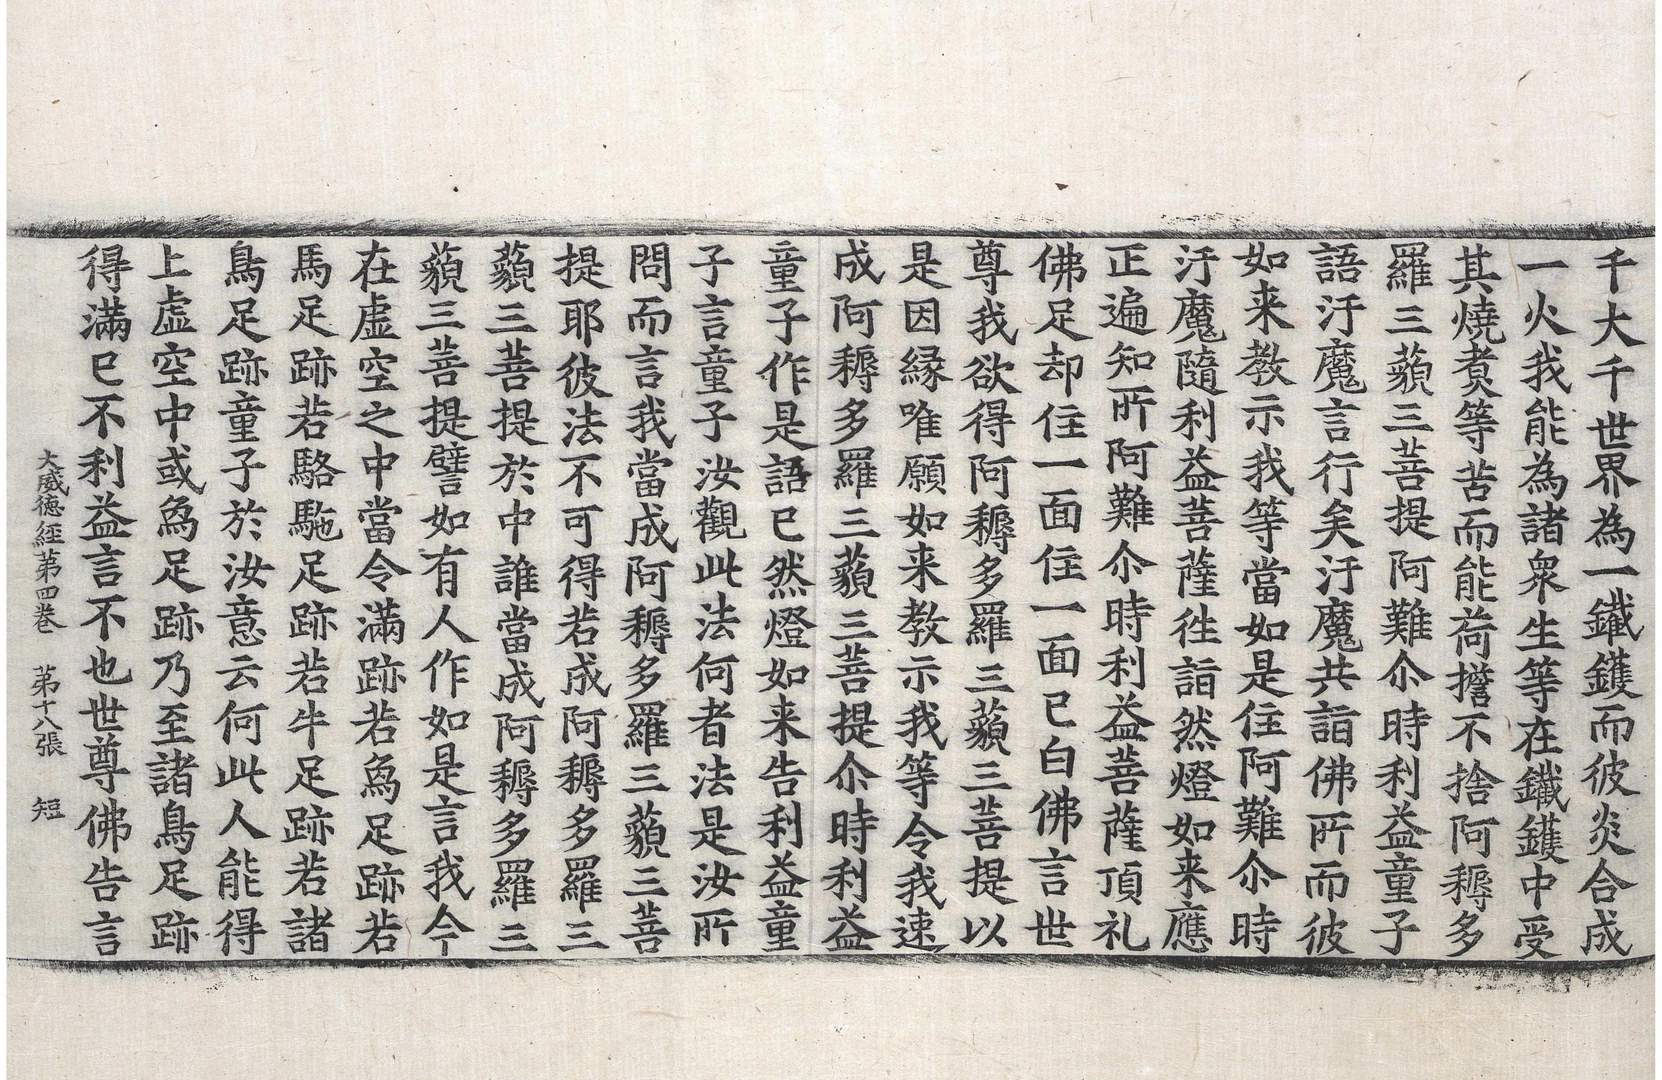 千大千世界為一鐵鑊而彼炎合成
一火我能為諸衆生等在鐵鑊中受
其燒煑等苦而能荷擔不捨阿耨多
羅三藐三菩提阿難尒時利益童子
語汙魔言行矣汙魔共詣佛所而彼
如来教示我等當如是住阿難尒時
汙魔隨利益菩薩徃詣然燈如来應
正遍知所阿難尒時利益菩薩頂礼
佛足却住一面住一面已白佛言世
尊我欲得阿耨多羅三藐三菩提以
是因縁唯願如来教示我等令我速
成阿耨多羅三藐三菩提尒時利益
童子作是語已然燈如来告利益童
子言童子汝觀此法何者法是汝所
問而言我當成阿耨多羅三藐三菩
提耶彼法不可得若成阿耨多羅三
藐三菩提於中誰當成阿耨多羅三
藐三菩提譬如有人作如是言我今
在虛空之中當令滿跡若爲足跡若
馬足跡若駱駞足跡若牛足跡若諸
鳥足跡童子於汝意云何此人能得
上虛空中或爲足跡乃至諸鳥足跡
得滿已不利益言不也世尊佛告言
大威德經第四卷　第十八張　短